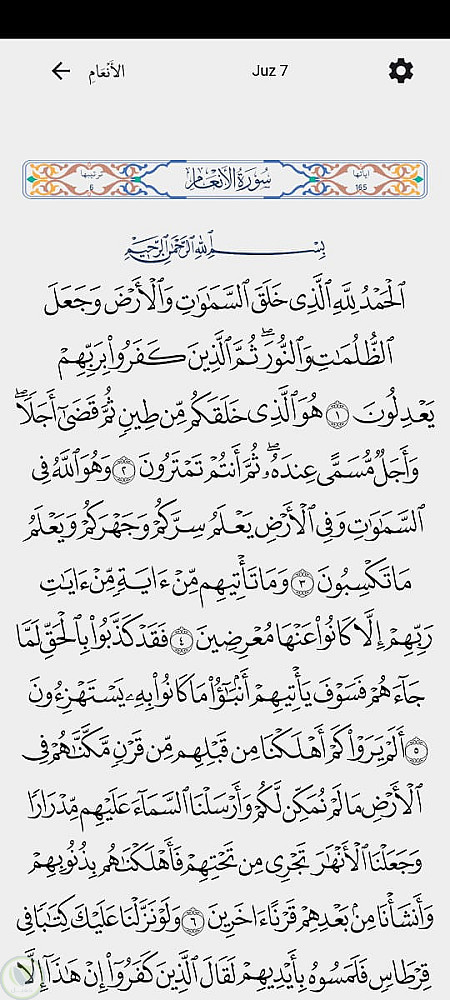 الأَنْعَامِ Juz 7
ترتيبها 6 سُورَةُ الأَنْعَام آياتها 165
بِسْمِ ٱللَّهِ ٱلرَّحْمَٰنِ ٱلرَّحِيمِ
ٱلْحَمْدُ لِلَّهِ ٱلَّذِى خَلَقَ ٱلسَّمَٰوَٰتِ وَٱلْأَرْضَ وَجَعَلَ
ٱلظُّلُمَٰتِ وَٱلنُّورَ ۖ ثُمَّ ٱلَّذِينَ كَفَرُوا۟ بِرَبِّهِمْ
يَعْدِلُونَ ١ هُوَ ٱلَّذِى خَلَقَكُم مِّن طِينٍ ثُمَّ قَضَىٰٓ أَجَلًا ۖ
وَأَجَلٌ مُّسَمًّى عِندَهُۥ ۖ ثُمَّ أَنتُمْ تَمْتَرُونَ ٢ وَهُوَ ٱللَّهُ فِى
ٱلسَّمَٰوَٰتِ وَفِى ٱلْأَرْضِ يَعْلَمُ سِرَّكُمْ وَجَهْرَكُمْ وَيَعْلَمُ
مَا تَكْسِبُونَ ٣ وَمَا تَأْتِيهِم مِّنْ ءَايَةٍ مِّنْ ءَايَٰتِ
رَبِّهِمْ إِلَّا كَانُوا۟ عَنْهَا مُعْرِضِينَ ٤ فَقَدْ كَذَّبُوا۟ بِٱلْحَقِّ لَمَّا
جَآءَهُمْ فَسَوْفَ يَأْتِيهِمْ أَنۢبَٰٓؤُا۟ مَا كَانُوا۟ بِهِۦ يَسْتَهْزِءُونَ
٥ أَلَمْ يَرَوْا۟ كَمْ أَهْلَكْنَا مِن قَبْلِهِم مِّن قَرْنٍ مَّكَّنَّٰهُمْ فِى
ٱلْأَرْضِ مَا لَمْ نُمَكِّن لَّكُمْ وَأَرْسَلْنَا ٱلسَّمَآءَ عَلَيْهِم مِّدْرَارًا
وَجَعَلْنَا ٱلْأَنْهَٰرَ تَجْرِى مِن تَحْتِهِمْ فَأَهْلَكْنَٰهُم بِذُنُوبِهِمْ
وَأَنشَأْنَا مِنۢ بَعْدِهِمْ قَرْنًا ءَاخَرِينَ ٦ وَلَوْ نَزَّلْنَا عَلَيْكَ كِتَٰبًا فِى
قِرْطَاسٍ فَلَمَسُوهُ بِأَيْدِيهِمْ لَقَالَ ٱلَّذِينَ كَفَرُوٓا۟ إِنْ هَٰذَآ إِلَّا